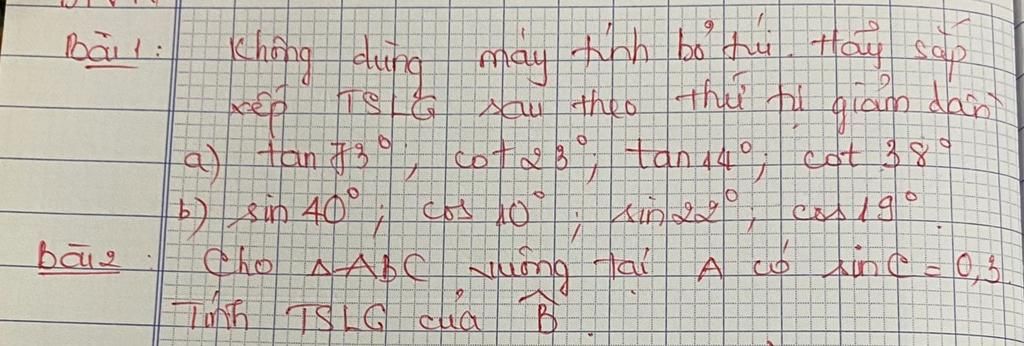 Bài 1: Không dùng máy tính bỏ túi. Hãy sắp
xếp TSLG sau theo thứ tự giảm dần
a) tan 73°; cot 23°; tan 14°; cot 38°
b) sin 40°; cos 10°; sin 22°; cos 19°
Bài 2: Cho △ABC vuông tại A có sin C = 0,3.
Tính TSLG của B̂.